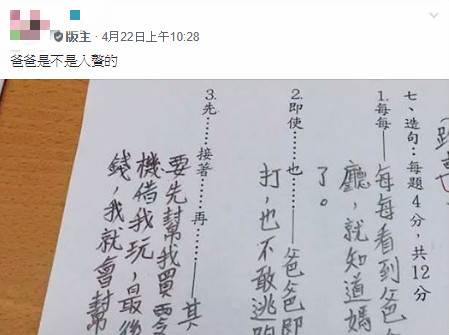 版主・4月22日上午10:28
爸爸是不是入贅的
七、造句：每題4分，共12分
1.每每——每每看到爸
廳，就知道媽
了。
2.即使……也……——爸爸即
打，也不敢逃
3.先……接著……再……——其
要先幫我買零
機借我玩，最後
錢，我就會幫